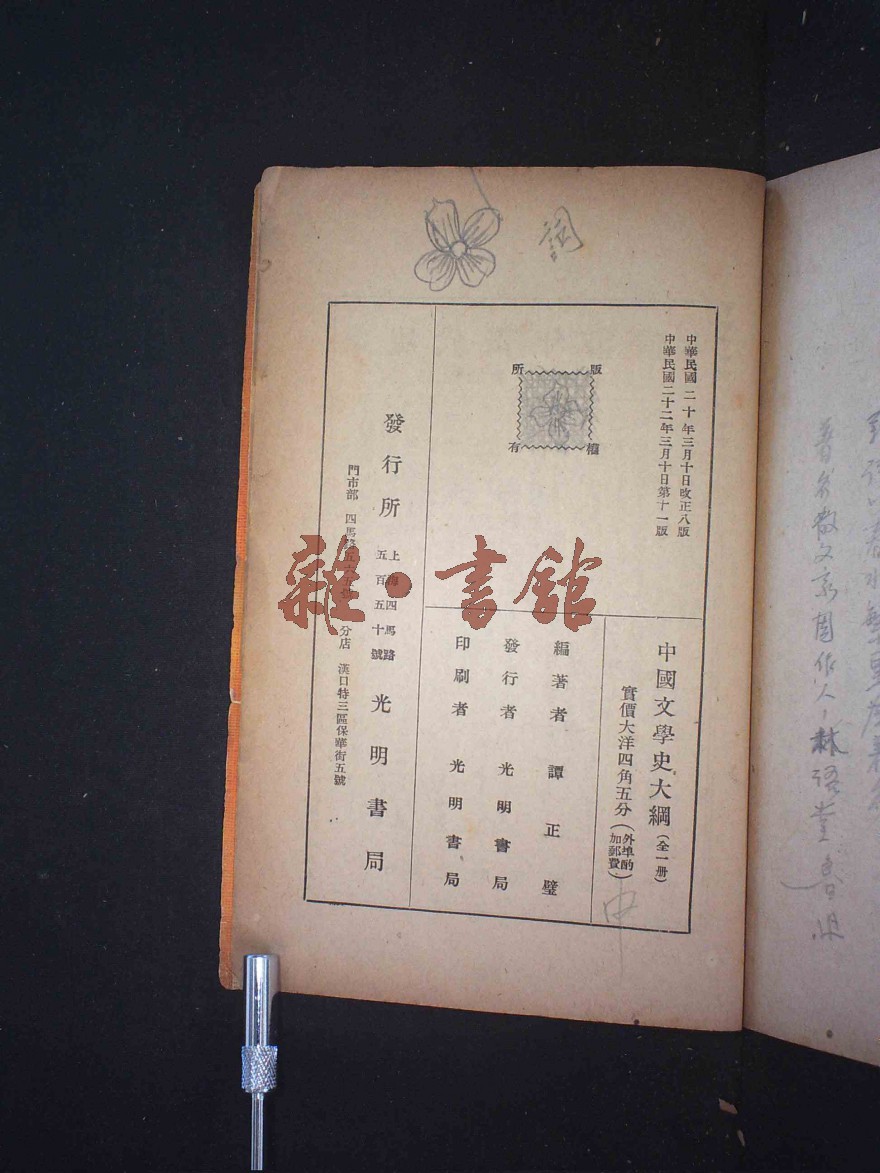 詞
中華民國二十年三月十日改正八版
中華民國二十二年三月十日第十一版
版權
所有
中國文學史大綱（全一册）
實價大洋四角五分（外埠酌加郵費）
編著者 譚正璧
發行者 光明書局
印刷者 光明書局
發行所 上海四馬路五百五十號 光明書局
門市部 四馬路 分店 漢口特三區保華街五號
中
雜·書館
著名散文家周作人，林語堂魯迅